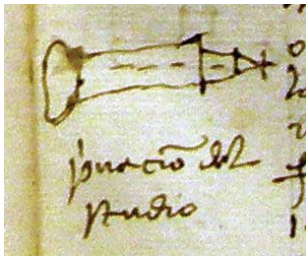 p̃uaciõ del
studio